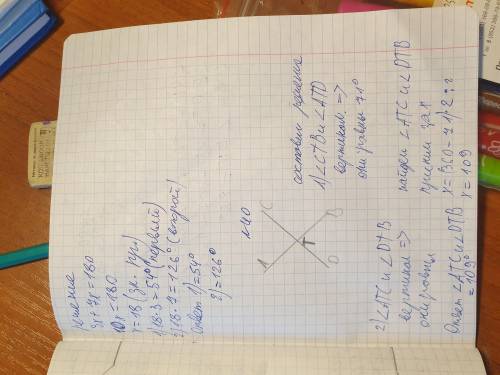 решение
3x + 7x = 180
10x = 180
x = 18
1) 18 · 3 = 54° (первый)
2) 18 · 7 = 126° (второй)
Ответ 1) = 54°
2) = 126°
№40
A
C
T
D
B
1) ∠CTB и ∠ATD
вертикал. =>
они равны 71°
2) ∠ATC и ∠DTB
вертикал =>
они равны
найдем ∠ATC и ∠DTB
x = (360 - 71·2) : 2
x = 109
Ответ ∠ATC и ∠DTB
= 109°